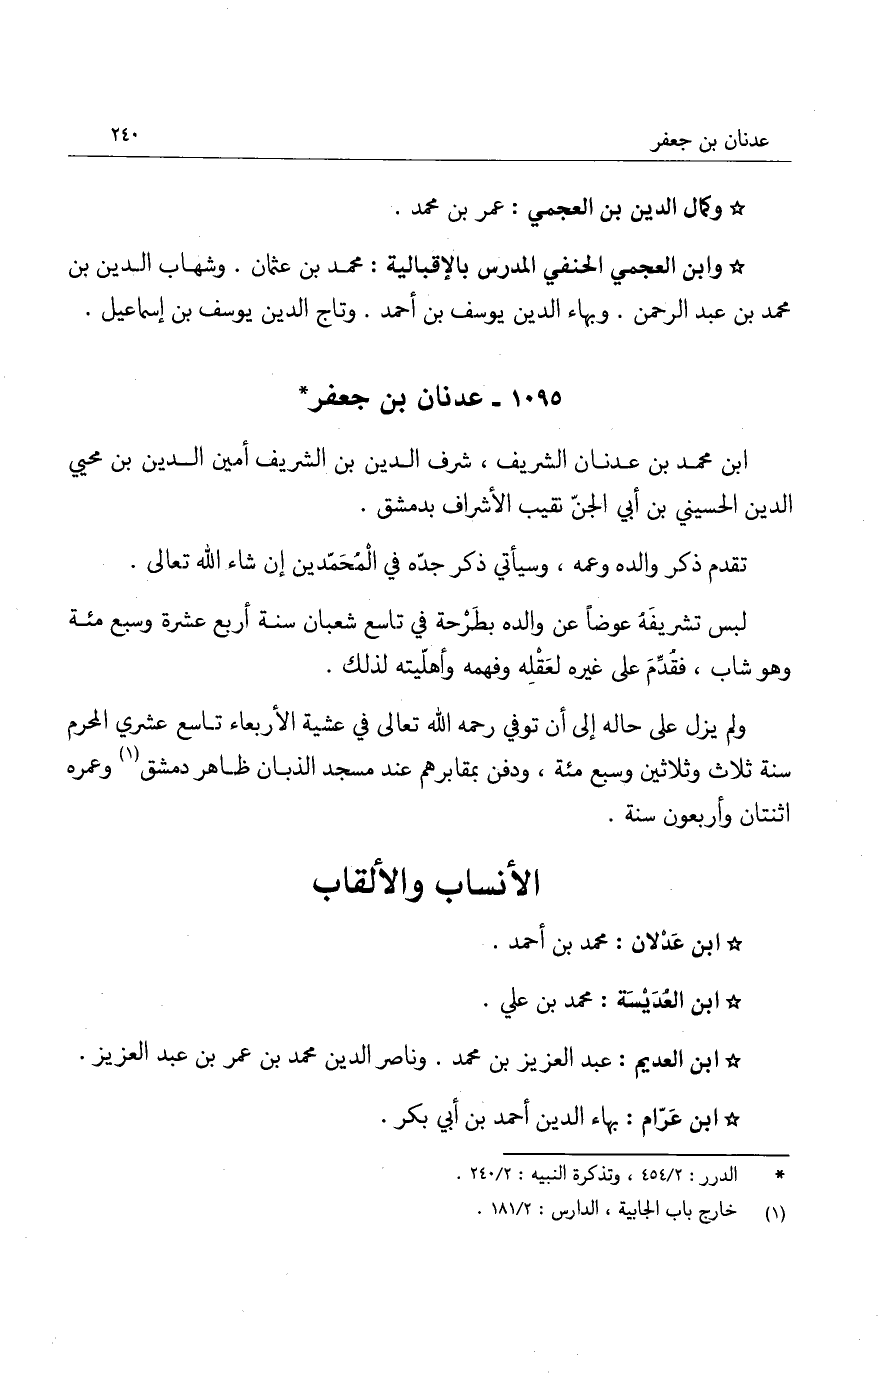 عدنان بن جعفر ٢٤٠
☆ وكمال الدين بن العجمي : عمر بن محمد .
☆ وابن العجمي الحنفي المدرس بالإقبالية : محمد بن عثمان . وشهاب الدين بن
محمد بن عبد الرحمن . وبهاء الدين يوسف بن أحمد . وتاج الدين يوسف بن إسماعيل .
١٠٩٥ ـ عدنان بن جعفر*
ابن محمد بن عدنان الشريف ، شرف الدين بن الشريف أمين الدين بن محيي
الدين الحسيني بن أبي الجنّ نقيب الأشراف بدمشق .
تقدم ذكر والده وعمه ، وسيأتي ذكر جدّه في الْمُحَمّدين إن شاء الله تعالى .
لبس تشريفَهُ عوضاً عن والده بطَرْحة في تاسع شعبان سنة أربع عشرة وسبع مئة
وهو شاب ، فقُدِّمَ على غيره لعَقْله وفهمه وأهلّيته لذلك .
ولم يزل على حاله إلى أن توفي رحمه الله تعالى في عشية الأربعاء تاسع عشري المحرم
سنة ثلاث وثلاثين وسبع مئة ، ودفن بمقابرهم عند مسجد الذبان ظاهر دمشق(١) وعمره
اثنتان وأربعون سنة .
الأنساب والألقاب
☆ ابن عَدْلان : محمد بن أحمد .
☆ ابن العُدَيْسَة : محمد بن علي .
☆ ابن العديم : عبد العزيز بن محمد . وناصر الدين محمد بن عمر بن عبد العزيز .
☆ ابن عَرّام : بهاء الدين أحمد بن أبي بكر .
* الدرر : ٤٥٤/٢ ، وتذكرة النبيه : ٢٤٠/٢ .
(١) خارج باب الجابية ، الدارس : ١٨١/٢ .